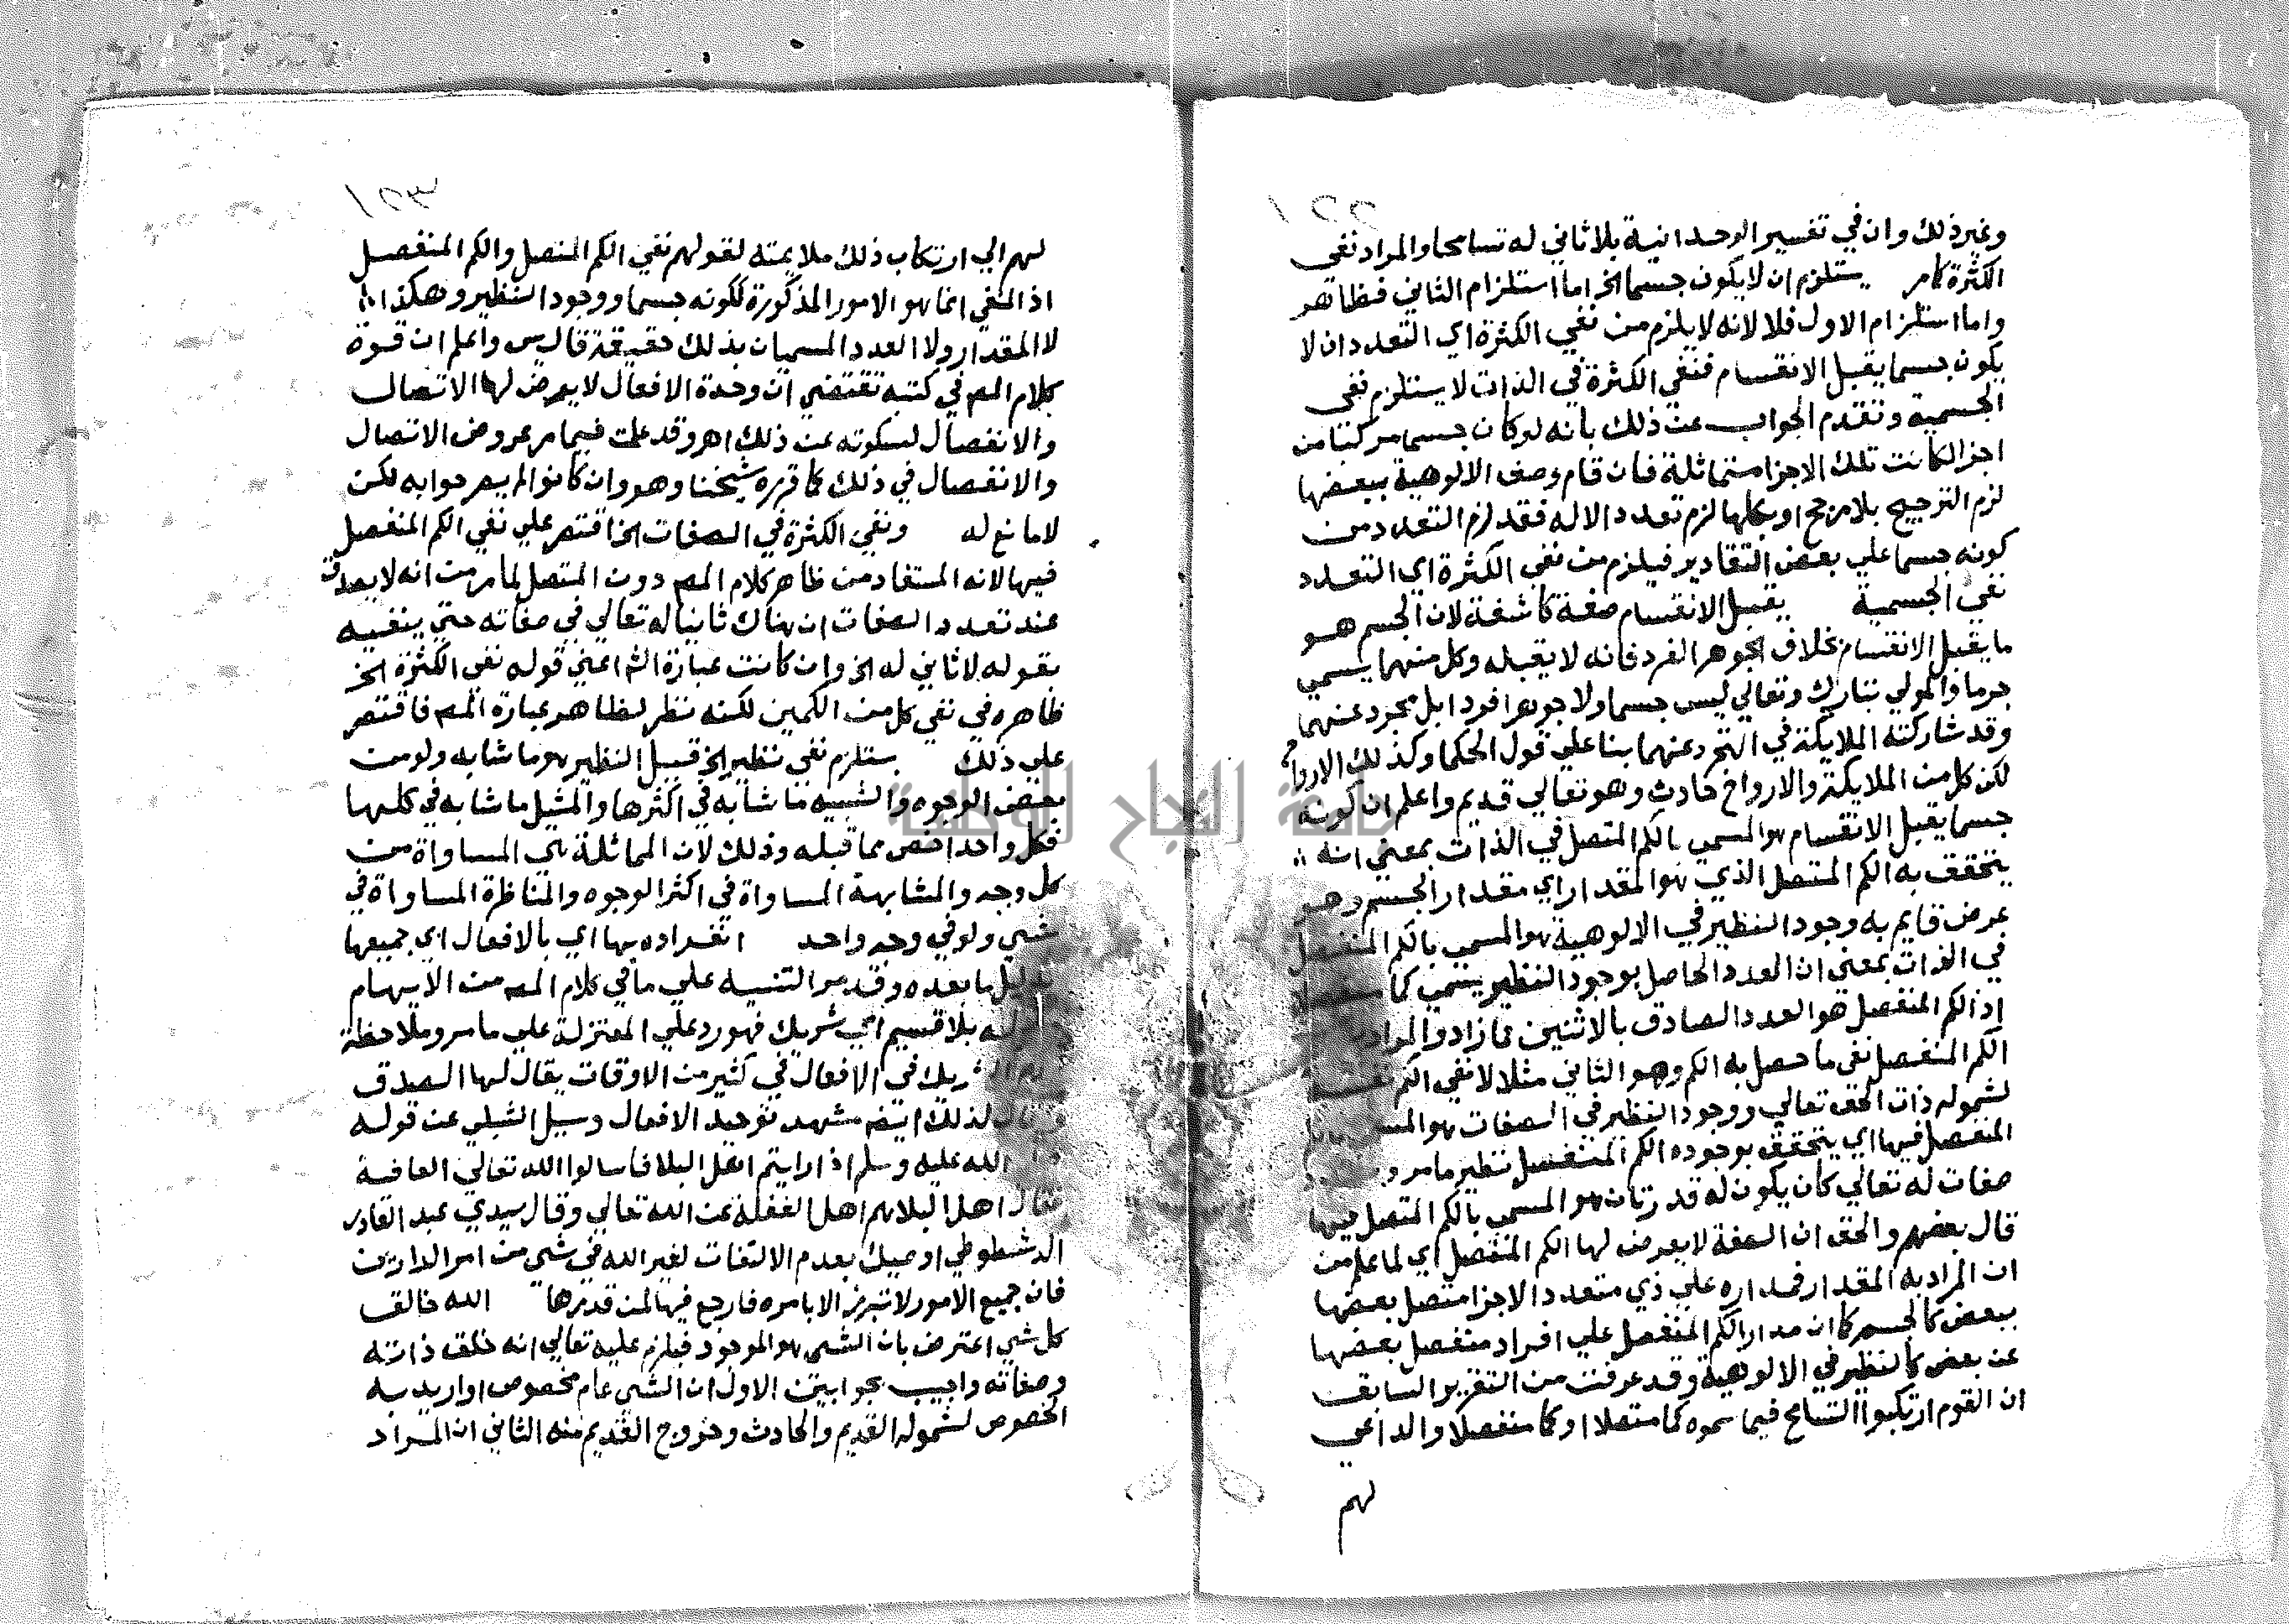 ١٢٢
وغير ذلك وان في تفسير الوحدانية بلا ثاني له تسامحا والمراد نفي
الكثرة كامر يستلزم ان لا يكون جسما الخ اما استلزام الثاني فظاهر
واما استلزام الاول فلا لانه لا يلزم من نفي الكثرة اي التعدد ان لا
يكون جسما يقبل الانقسام فنفي الكثرة في الذات لا يستلزم نفي
الجسمية وتقدم الجواب عن ذلك بانه لو كان جسما مركبا من
اجزا لكانت تلك الاجزا متماثلة فان قام وصف الالوهية ببعضها
لزم الترجيح بلا مرجح او بكلها لزم تعدد الاله فقد لزم التعدد من
كونه جسما علي بعض التقادير فيلزم من نفي الكثرة اي التعدد
نفي الجسمية يقبل الانقسام صفة كاشفة لان الجسم هو
ما يقبل الانقسام بخلاف الجوهر الفرد فانه لا يقبله وكل منهما يسمي
جرما والمولي تبارك وتعالي ليس جسما ولا جوهرا فردا بل مجرد عنهما
وقد شاركته الملايكة في التجرد عنهما بنا علي قول الحكما وكذلك الارواح
لكن كل من الملايكة والارواح حادث وهو تعالي قديم واعلم ان كونه
جسما يقبل الانقسام هو المسمي بالكم المتصل في الذات بمعني انه
يتحقق به الكم المتصل الذي هو المقدار اي مقدار الجسم وهو
عرض قايم به وجود النظير في الالوهية هو المسمي بالكم المنفصل
في الذات بمعني ان العدد الحاصل بوجود النظير يسمي كما
اذ الكم المنفصل هو العدد الصادق بالاثنين فما زاد والمراد
الكم المنفصل نفي ما حصل به الكم وهو الثاني مثلا لا نفي الكم
لشموله ذات الحق تعالي ووجود النظير في الصفات هو المسمي
المنفصل فيها اي يتحقق بوجوده الكم المنفصل نظير ما مر
صفات له تعالي كان يكون له قدرتان هو المسمي بالكم المتصل فيها
قال بعضهم والحق ان الصفة لا يعرض لها الكم المنفصل اي لما علم من
ان المراد به المقدار فمداره علي ذي متعدد الاجزا متصل بعضها
ببعض كالجسم كما ان مدار الكم المنفصل علي افراد منفصل بعضها
عن بعض كالنظير في الالوهية وقد عرفت من التقرير السابق
ان القوم ارتكبوا التسامح فيما سموه كما متصلا او كما منفصلا والداعي
لهم
١٢٣
لهم الي ارتكاب ذلك ملايمته لقولهم نفي الكم المتصل والكم المنفصل
اذ المنفي انما هو الامور المذكورة ككونه جسما ووجود النظير وهكذا
لا المقدار ولا العدد المسميان بذلك حقيقة قال يس واعلم ان قوة
كلام المص في كتبه تقتضي ان وحدة الافعال لا يعرض لها الاتصال
والانفصال لسكوته عن ذلك اهر وقد علمت فيما مر عروض الاتصال
والانفصال في ذلك كما قرره شيخنا وهو وان كانوا لم يصرحوا به لكن
لا مانع له ونفي الكثرة في الصفات الخ اقتصر علي نفي الكم المنفصل
فيها لانه المستفاد من ظاهر كلام المص دون المتصل لما مر من انه لا يصدق
عند تعدد الصفات ان هناك ثانيا له تعالي في صفاته حتي ينفيه
بقوله لا ثاني له الخ وان كانت عبارة الش اعني قوله نفي الكثرة الخ
ظاهره في نفي كل من الكمين لكنه نظر لظاهر عبارة المص فاقتصر
علي ذلك يستلزم نفي نظير الخ قيل النظير هو ما شابه ولو من
بعض الوجوه والشبيه ما شابه في اكثرها والمثيل ما شابه في كلها
فكل واحد اخص مما قبله وذلك لان المماثلة هي المساواة من
كل وجه والمشابهة المساواة في اكثر الوجوه والمناظرة المساواة في
شي ولو في وجه واحد انفراده بها اي بالافعال اي جميعها
بدليل ما بعده وقد مر التنبيه علي ما في كلام المص من الايهام
بلا قسيم اي شريك فهو رد علي المعتزلة علي ما مر وملاحظة
الشريك في الافعال في كثير من الاوقات يقال لها الصدق
لذلك ايضا مشهد توحيد الافعال وسيل الشبلي عن قوله
الله عليه وسلم اذا رايتم اهل البلا فاسالوا الله تعالي العافية
فقال اهل البلا هم اهل الغفلة عن الله تعالي وقال سيدي عبد القادر
الدشطوطي اوصيك بعدم الالتفات لغير الله في شي من امر الدارين
فان جميع الامور لا تبرز الا بامره فارجع فيها لمن قدرها الله خالق
كل شي اعترض بان الشي هو الموجود فيلزم عليه تعالي انه خلق ذاته
وصفاته واجيب بجوابين الاول ان الشي عام مخصوص او اريد به
الخصوص لشموله القديم والحادث وخروج القديم منه الثاني ان المراد
جامعة النجاح الوطنية